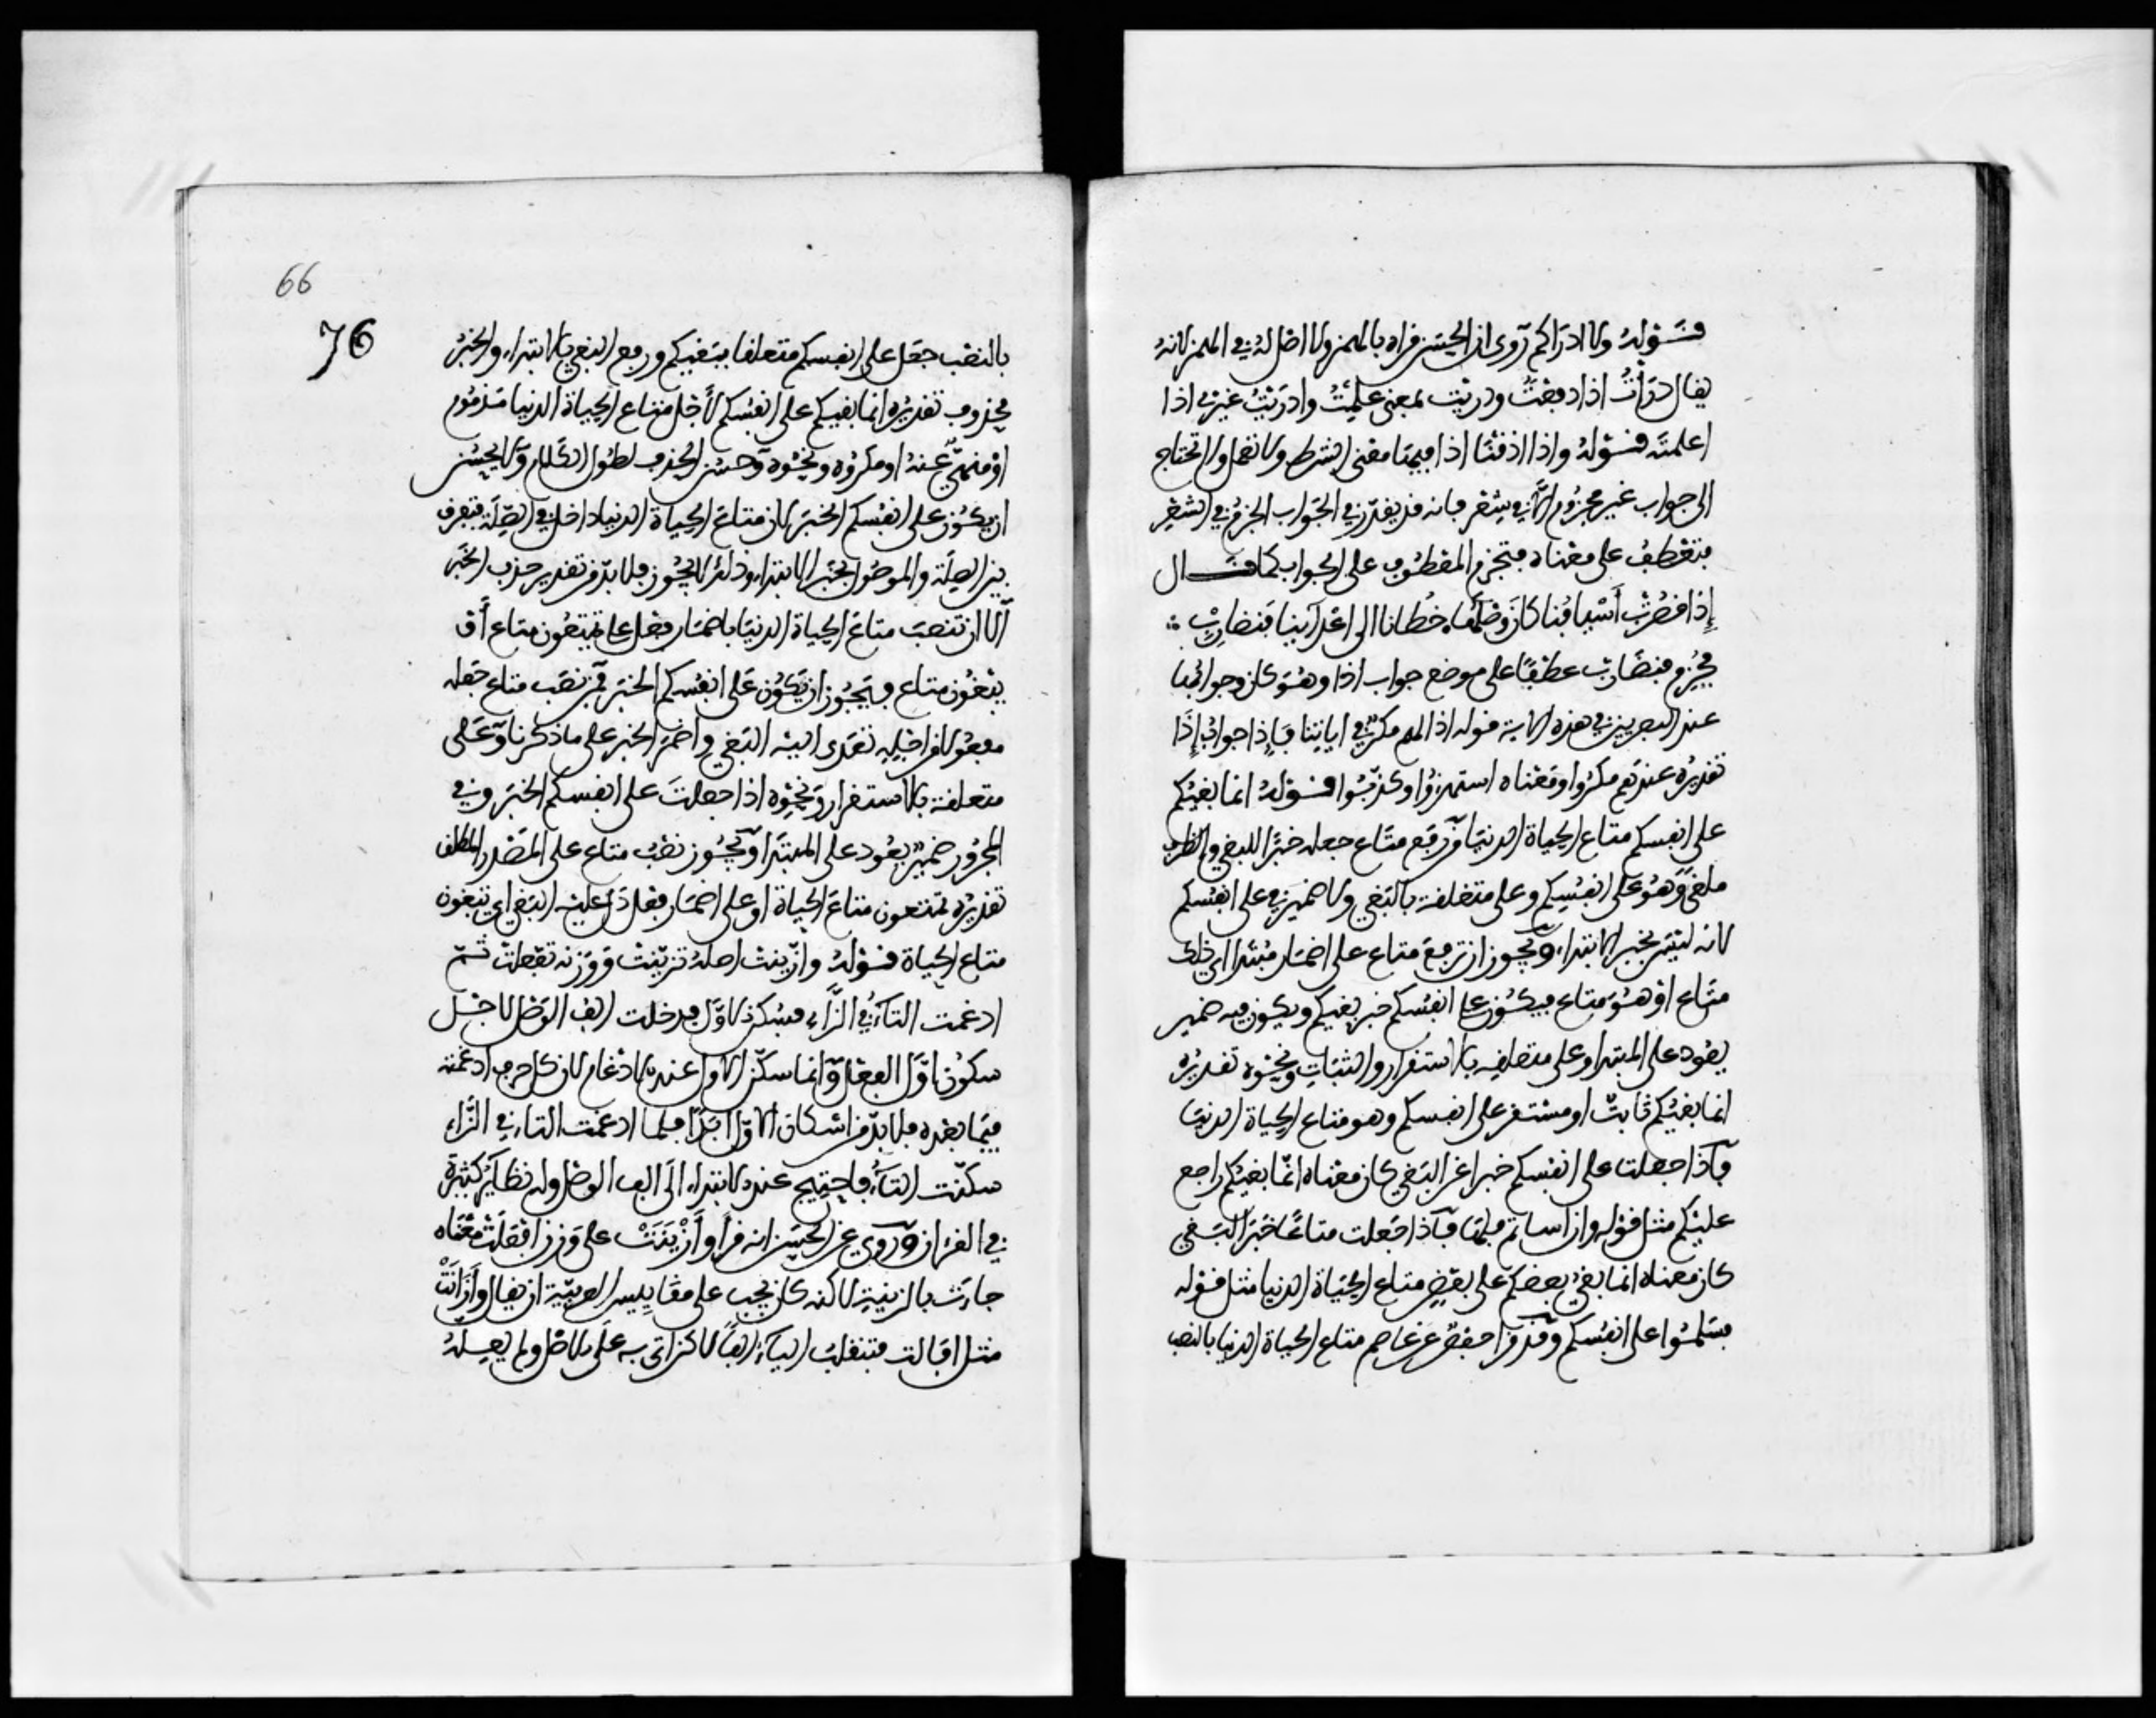 قوله ولا ادراكم روى ان الحسن قراه بالهمز ولا اصل له في الهمز لانه
يقال درأت اذا دفعت ودريت بمعنى علمت وادريت غيري اذا
اعلمته قوله واذا اذقنا اذا فيها معنى الشرط ولا تعمل ولا تحتاج
الى جواب غير مجزوم الا في شعر فانه قد يقدر في الجواب الجزم في الشعر
فتعطف على معناه فتجزم المعطوف على الجواب كما قال
إذا قصرت أسيافنا كان وصلها خطانا الى اعدآئنا فنضارب
فجزم فنضارب عطفا على موضع جواب اذا وهو كان وجوابها
عند البصريين في هذه الاية قوله اذا لهم مكر في اياتنا فإذا جواب إذا
تقديره عندهم مكروا ومعناه استهزؤا وكذبوا قوله انما بغيكم
على انفسكم متاع الحياة الدنيا من رفع متاع جعله خبرا للبغي والظرف
ملغى وهو على انفسكم وعلى متعلقة بالبغي ولا ضمير في على انفسكم
لانه ليس بخبر الابتداء ويجوز ان ترفع متاع على اضمار مبتدا اي ذلك
متاع او هو متاع فيكون على انفسكم خبر بغيكم ويكون فيه ضمير
يعود على المبتدا وعلى متعلقه بالاستقرار والثبات ونحوه تقديره
انما بغيكم ثابت او مستقر على انفسكم وهو متاع الحياة الدنيا
فآذا جعلت على انفسكم خبرا عن البغي كان معناه انما بغيكم راجع
عليكم مثل قوله وان اساتم فلها فآذا جعلت متاعا خبر البغي
كان معناه انما بغي بعضكم على بعض متاع الحياة الدنيا مثل قوله
فسلموا على انفسكم وقد قرا حفص عن عاصم متاع الحياة الدنيا بالنصب
66
76
بالنصب جعل على انفسكم متعلقا ببغيكم ورفع البغي بالابتداء والخبر
محذوف تقديره انما بغيكم على انفسكم لأجل متاع الحياة الدنيا مذموم
او منهي عنه او مكروه ونحوه وحسن الحذف لطول الكلام ولا يحسن
ان يكون على انفسكم الخبر لان متاع الحياة الدنيا داخل في الصلة فتفرق
بين الصلة والموصول بخبر الابتداء وذلك لا يجوز فلا بد من تقدير حذف الخبر
الا ان تنصب متاع الحياة الدنيا باضمار فعل على تمتعون متاع أو
يبغون متاع فيجوز ان يكون على انفسكم الخبر من نصب متاع جعله
مفعولا من اجله تعدى اليه البغي واضمر الخبر على ما ذكرنا وعلى
متعلقة بالاستقرار ونحوه اذا جعلت على انفسكم الخبر وفي
المجرور ضمير يعود على المبتدا ويجوز نصب متاع على المصدر المطلق
تقديره تمتعون متاع الحياة او على اضمار فعل دل عليه البغي اي تبغون
متاع الحياة قوله وازينت اصله تزينت ووزنه تفعلت ثم
ادغمت التآء في الزاء فسكن الاول فدخلت الف الوصل لاجل
سكون اول الفعل وانما سكن الاول عند الادغام لان كل حرف ادغمته
فيما بعده فلا بد من اسكان الاول ابدا فلما ادغمت التاء في الزاء
سكنت التآء فاحتيج عند الابتداء الى الف الوصل وله نظاير كثيرة
في القران وروي عن الحسن انه قرا وأزينت على وزن افعلت معناه
جاءت بالزينة لاكنه كان يجب على مقاييس العربية ان يقال وأزانت
مثل اقالت فتنقلب اليآء الفا لاكن اتى به على الاصل ولم يعله